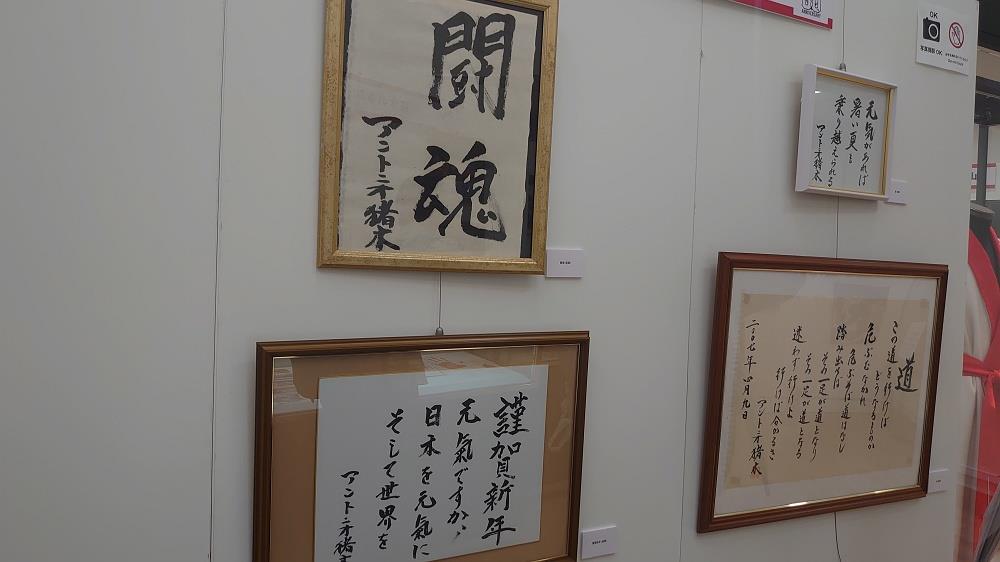 闘魂
アントニオ猪木
元気があれば
暑い夏も
乗り越えられる
アントニオ猪木
OK
写真撮影OK
ANNIVERSARY
謹賀新年
元氣ですか、
日本を元氣に
そして世界を
アントニオ猪木
道
この道を行けば
どうなるものか
危ぶむなかれ
危ぶめば道はなし
踏み出せば
その一足が道となり
その一足が道となる
迷わず行けよ
行けば分かるさ
二〇〇七年四月九日
アントニオ猪木